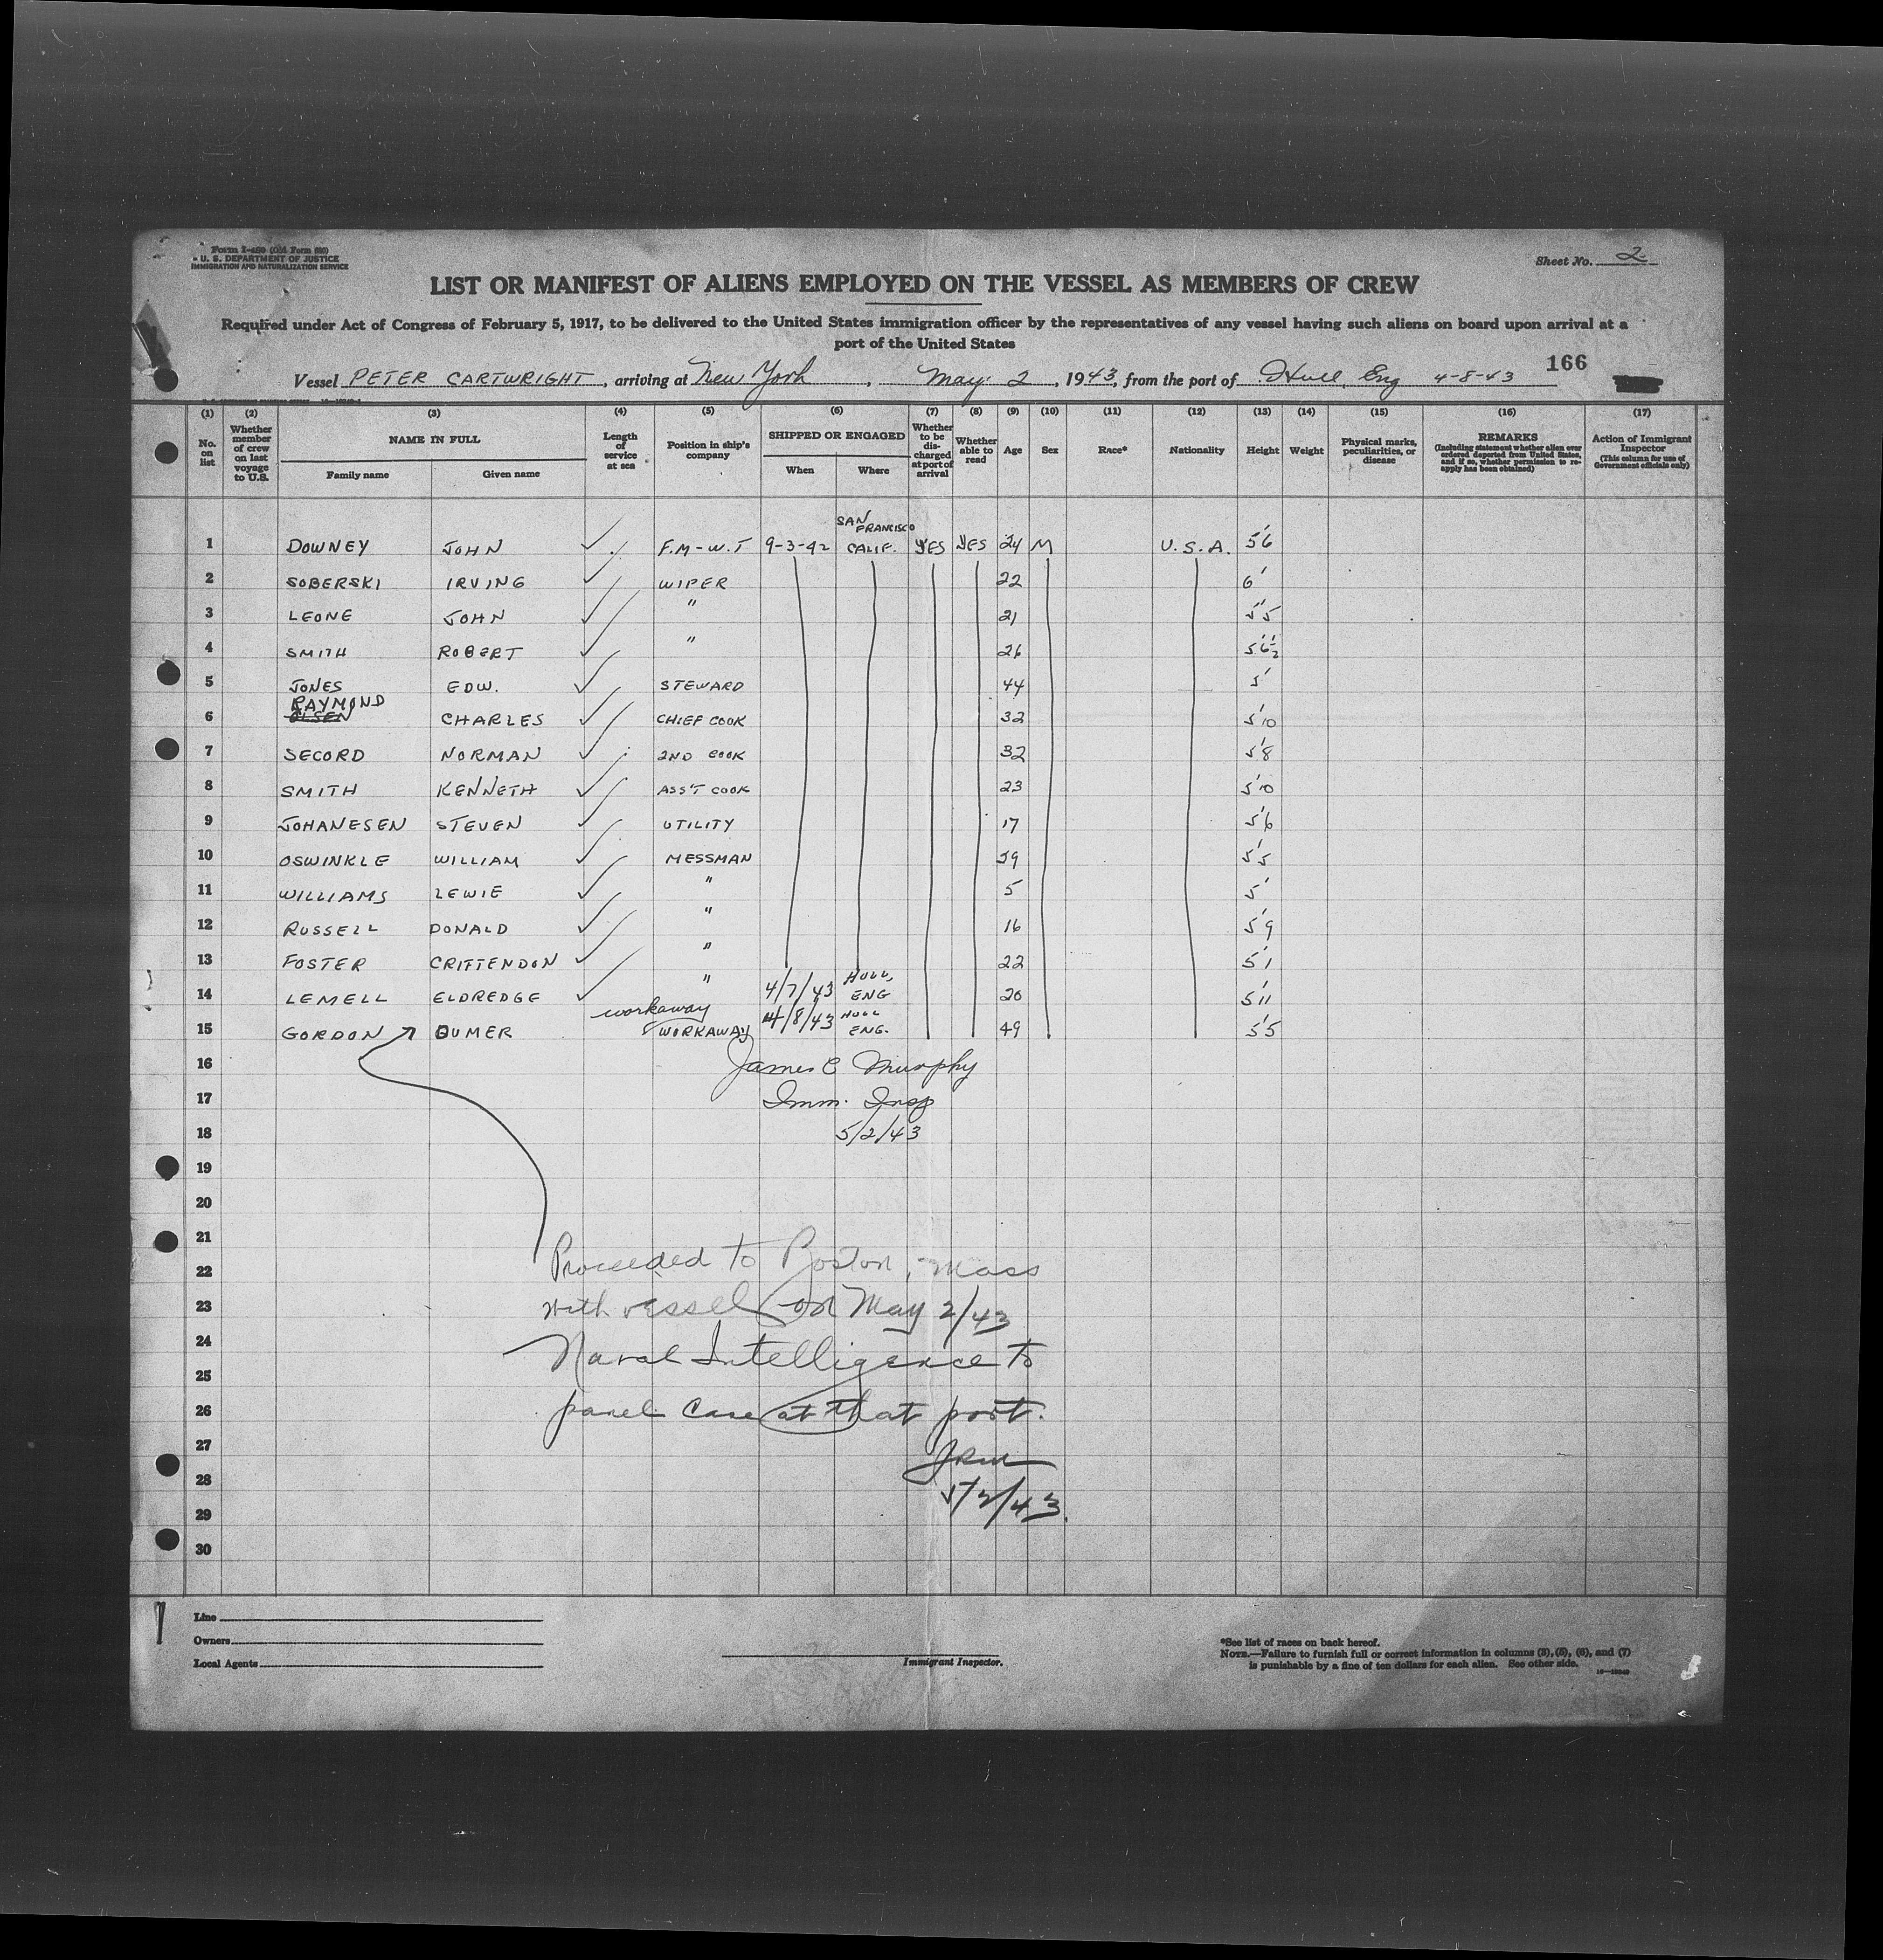 Form I-480 (Old Form 680)
U. S. DEPARTMENT OF JUSTICE
IMMIGRATION AND NATURALIZATION SERVICE
Sheet No. 2
LIST OR MANIFEST OF ALIENS EMPLOYED ON THE VESSEL AS MEMBERS OF CREW
Required under Act of Congress of February 5, 1917, to be delivered to the United States immigration officer by the representatives of any vessel having such aliens on board upon arrival at a
port of the United States
166
Vessel PETER CARTWRIGHT, arriving at New York, May 2, 1943, from the port of Hull, Eng 4-8-43
(1) (2) (3) (4) (5) (6) (7) (8) (9) (10) (11) (12) (13) (14) (15) (16) (17)
No. on list
Whether member of crew on last voyage to U.S.
NAME IN FULL
Family name Given name
Length of service at sea
Position in ship's company
SHIPPED OR ENGAGED
When Where
Whether to be discharged at port of arrival
Whether able to read
Age Sex Race* Nationality Height Weight
Physical marks, peculiarities, or disease
REMARKS
(Including statement whether alien ever ordered deported from United States, and if so, whether permission to reapply has been obtained)
Action of Immigrant Inspector
(This column for use of Government officials only)
1 DOWNEY JOHN F.M-W.T 9-3-42 SAN FRANCISCO CALIF. YES YES 24 M U.S.A. 5'6
2 SOBERSKI IRVING WIPER 22 6'
3 LEONE JOHN " 21 5'5
4 SMITH ROBERT " 26 5'6½
5 JONES EDW. STEWARD 44 5'
6 RAYMOND OLSEN CHARLES CHIEF COOK 32 5'10
7 SECORD NORMAN 2ND COOK 32 5'8
8 SMITH KENNETH ASS'T COOK 23 5'10
9 JOHANESEN STEVEN UTILITY 17 5'6
10 OSWINKLE WILLIAM MESSMAN 59 5'5
11 WILLIAMS LEWIE " 5 5'
12 RUSSELL DONALD " 16 5'9
13 FOSTER CRITTENDON " 22 5'1
14 LEMELL ELDREDGE " 4/7/43 HULL, ENG 20 5'11
15 GORDON OUMER workaway WORKAWAY 4/8/43 HULL ENG. 49 5'5
16 James C Murphy
17 Imm. Insp
18 5/2/43
19
20
21
22 Proceeded to Boston, Mass
23 with vessel on May 2/43
24 Naval Intelligence to
25
26 panel case at that port.
27 JRM
28
29 5/2/43.
30
Line
Owners
Local Agents
Immigrant Inspector.
*See list of races on back hereof.
NOTE.—Failure to furnish full or correct information in columns (3), (5), (6), and (7)
is punishable by a fine of ten dollars for each alien. See other side.